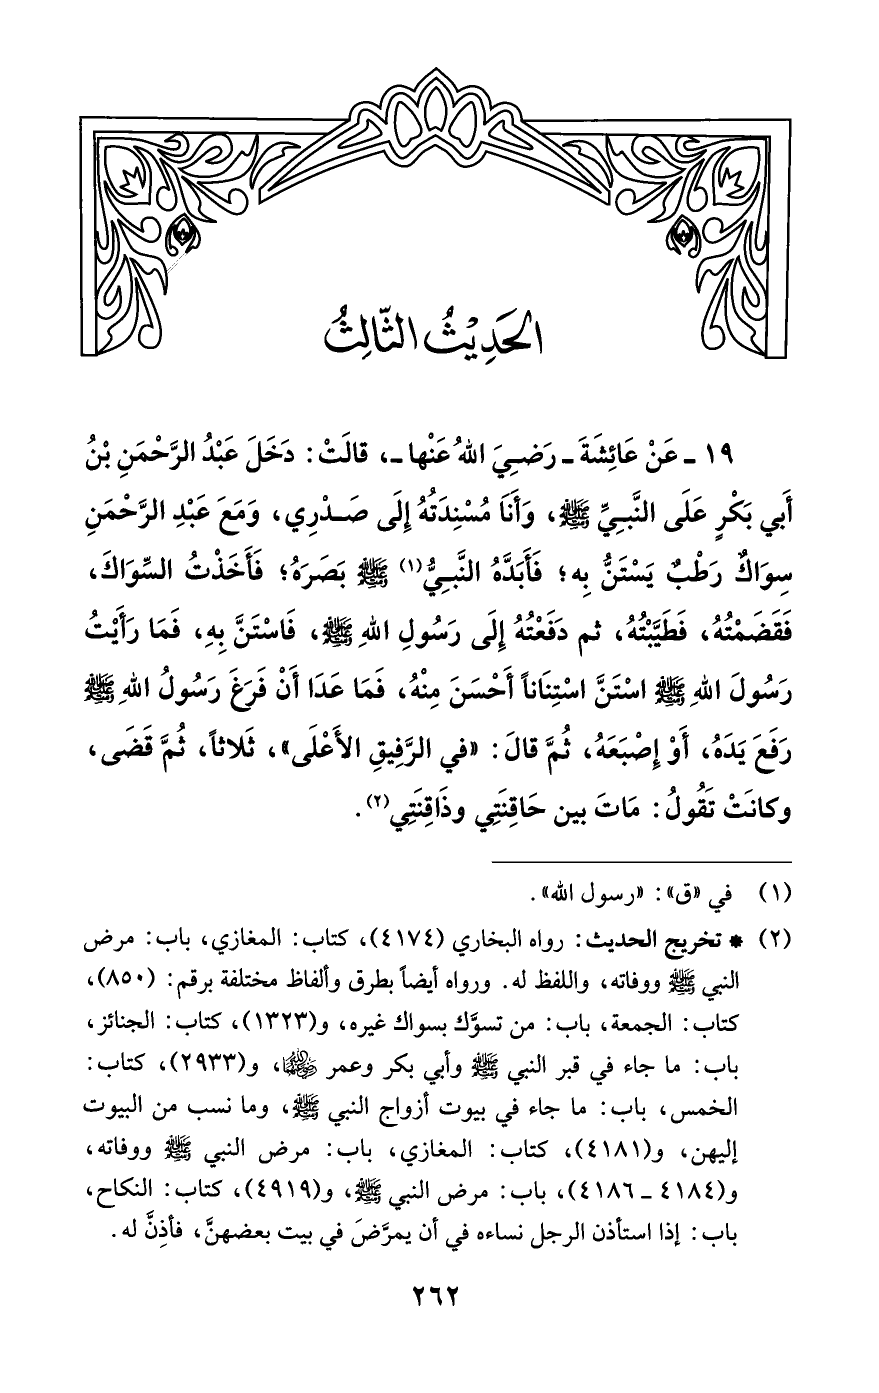 الحَدِيْثُ الثَّالِثُ
١٩ ـ عَنْ عَائِشَةَ ـ رَضِيَ اللهُ عَنْها ـ، قالَتْ: دَخَلَ عَبْدُ الرَّحْمَنِ بْنُ
أَبي بَكْرٍ عَلَى النَّبِيِّ ﷺ، وَأَنَا مُسْنِدَتُهُ إِلَى صَدْرِي، وَمَعَ عَبْدِ الرَّحْمَنِ
سِوَاكٌ رَطْبٌ يَسْتَنُّ بِه؛ فَأَبَدَّهُ النَّبِيُّ(١) ﷺ بَصَرَهُ؛ فَأَخَذْتُ السِّوَاكَ،
فَقَضَمْتُهُ، فَطَيَّبْتُهُ، ثم دَفَعْتُهُ إِلَى رَسُولِ اللهِ ﷺ، فَاسْتَنَّ بِهِ، فَمَا رَأَيْتُ
رَسُولَ اللهِ ﷺ اسْتَنَّ اسْتِنَاناً أَحْسَنَ مِنْهُ، فَمَا عَدَا أَنْ فَرَغَ رَسُولُ اللهِ ﷺ
رَفَعَ يَدَهُ، أَوْ إِصْبَعَهُ، ثُمَّ قالَ: «في الرَّفِيقِ الأَعْلَى»، ثَلاثاً، ثُمَّ قَضَى،
وكانَتْ تَقُولُ: مَاتَ بين حَاقِنَتِي وذَاقِنَتِي(٢).
(١) في «ق»: «رسول الله».
(٢) * تخريج الحديث: رواه البخاري (٤١٧٤)، كتاب: المغازي، باب: مرض
النبي ﷺ ووفاته، واللفظ له. ورواه أيضاً بطرق وألفاظ مختلفة برقم: (٨٥٠)،
كتاب: الجمعة، باب: من تسوَّك بسواك غيره، و(١٣٢٣)، كتاب: الجنائز،
باب: ما جاء في قبر النبي ﷺ وأبي بكر وعمر رضي الله عنهما، و(٢٩٣٣)، كتاب:
الخمس، باب: ما جاء في بيوت أزواج النبي ﷺ، وما نسب من البيوت
إليهن، و(٤١٨١)، كتاب: المغازي، باب: مرض النبي ﷺ ووفاته،
و(٤١٨٤ ـ ٤١٨٦)، باب: مرض النبي ﷺ، و(٤٩١٩)، كتاب: النكاح،
باب: إذا استأذن الرجل نساءه في أن يمرَّضَ في بيت بعضهنَّ، فأذِنَّ له.
٢٦٢